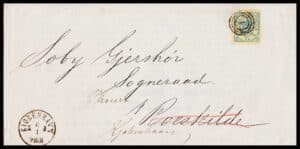 Soby Gjershøi
Sogneraad
pr Roeskilde
Kjøbenhavn
KIØBENHAVN